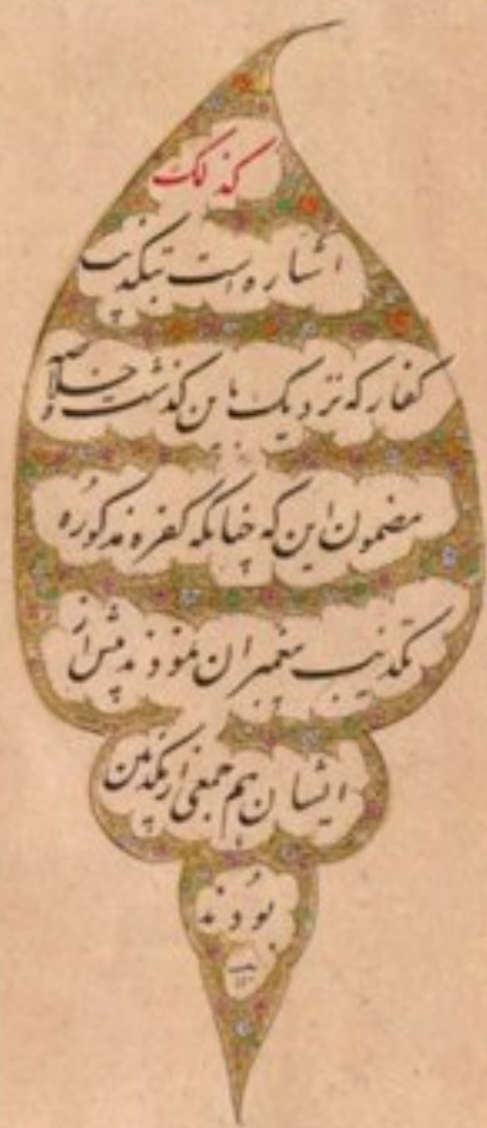 کذلک
اشاره است بتکذیب
کفار که نزدیک باین گذشت و خلاصه
مضمون این که چنانکه کفره مذکوره
تکذیب پیغمبران نمودند پیش از
ایشان هم جمعی از مکذبین
بودند